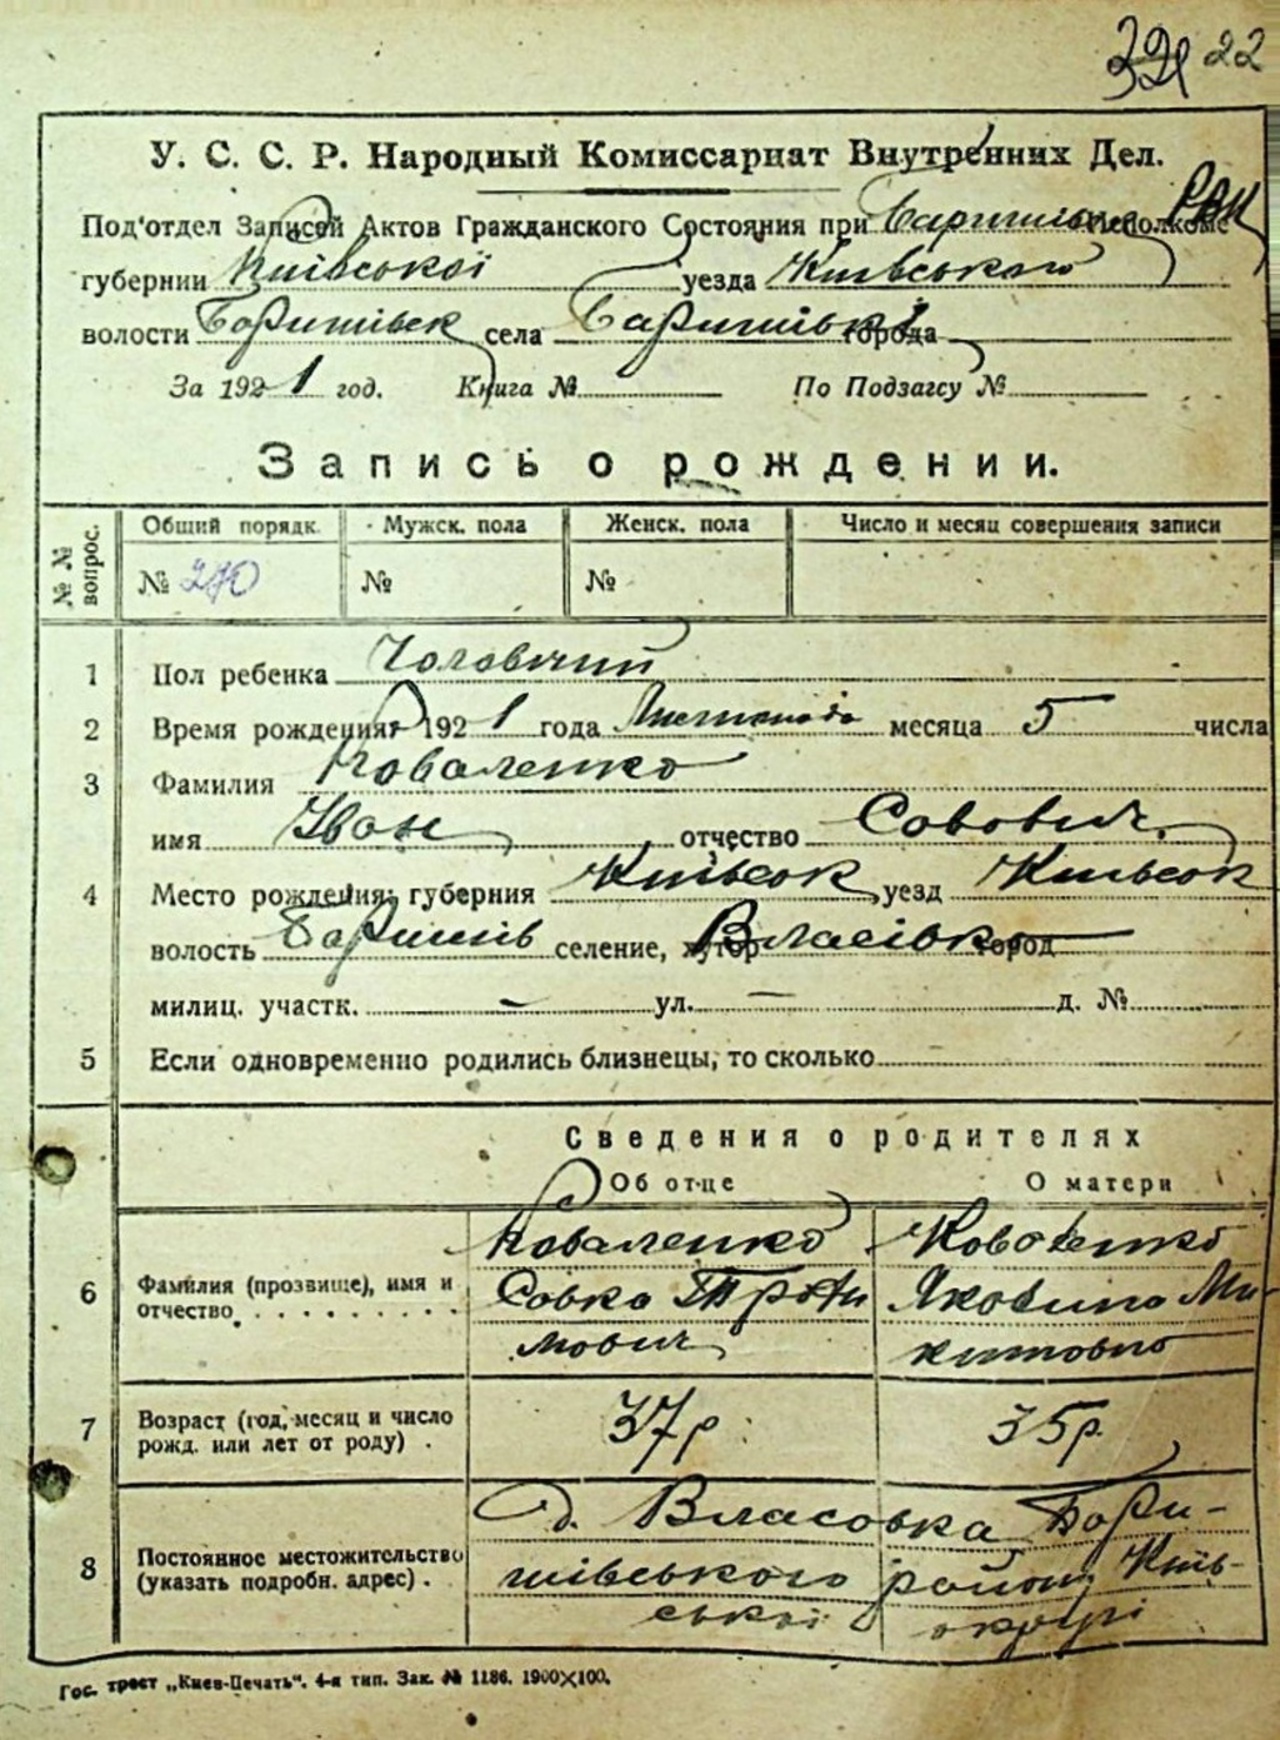 22
У. С. С. Р. Народный Комиссариат Внутренних Дел.
Под'отдел Записей Актов Гражданского Состояния при Исполкоме
губернии Київської уезда Київського
волости Баришівск села Баришівка города
За 1921 год. Книга № По Подзагсу №
Запись о рождении.
№ № вопрос. Общий порядк. Мужск. пола Женск. пола Число и месяц совершения записи
№ 270 № №
1 Пол ребенка Чоловичий
2 Время рождения: 1921 года Листопада месяца 5 числа
3 Фамилия Коваленко
имя Иван отчество Савович
4 Место рождения: губерния Київськ уезд Київськ
волость Баришів селение, хутор Власівка город
милиц. участк. — ул. — д. №
5 Если одновременно родились близнецы, то сколько
Сведения о родителях
Об отце О матери
6 Фамилия (прозвище), имя и отчество
Коваленко Коваленко
Совка Трофи Яковина Ми-
мович китовно
7 Возраст (год, месяц и число рожд. или лет от роду) . 37р. 35р.
8 Постоянное местожительство (указать подробн. адрес) .
д. Власовка Бари-
шівського району Київ-
ської округі
Гос. трест „Киев-Печать". 4-я тип. Зак. № 1186. 1900×100.